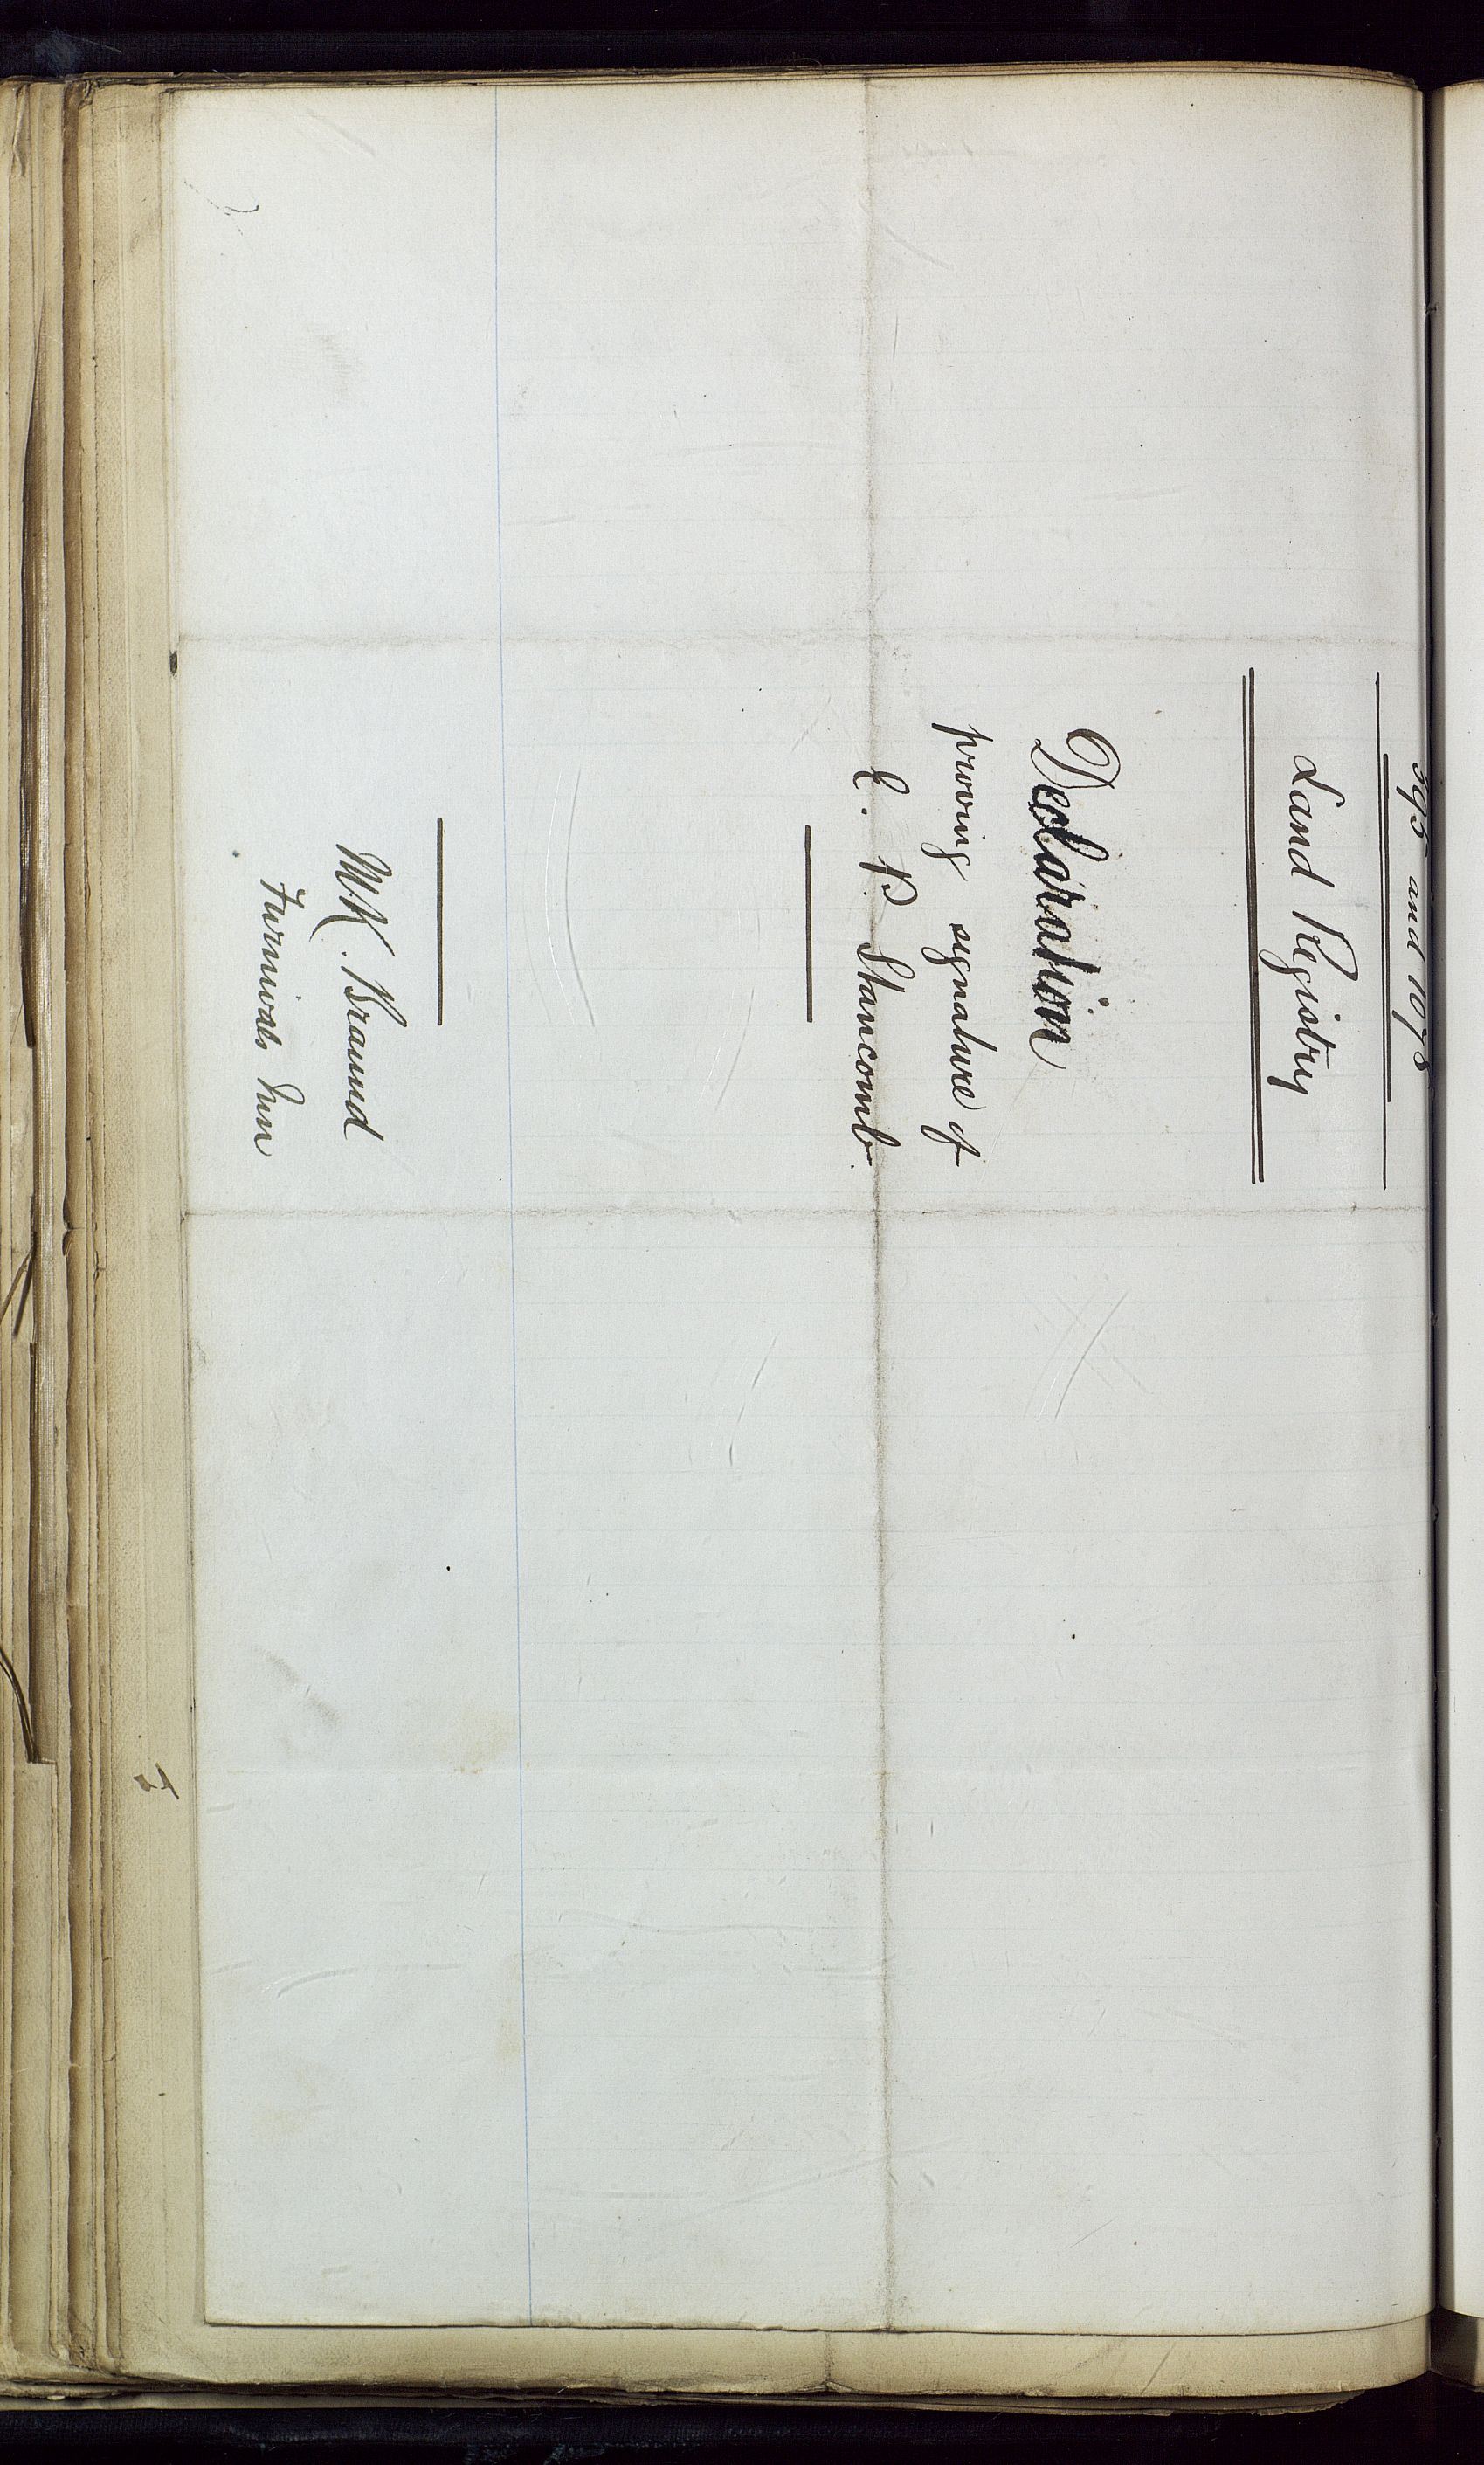 395 and 1078
Land Registry
Declaration
proving signature of
E. P. Stancomb.
M.K. Braund
Furnivals Inn